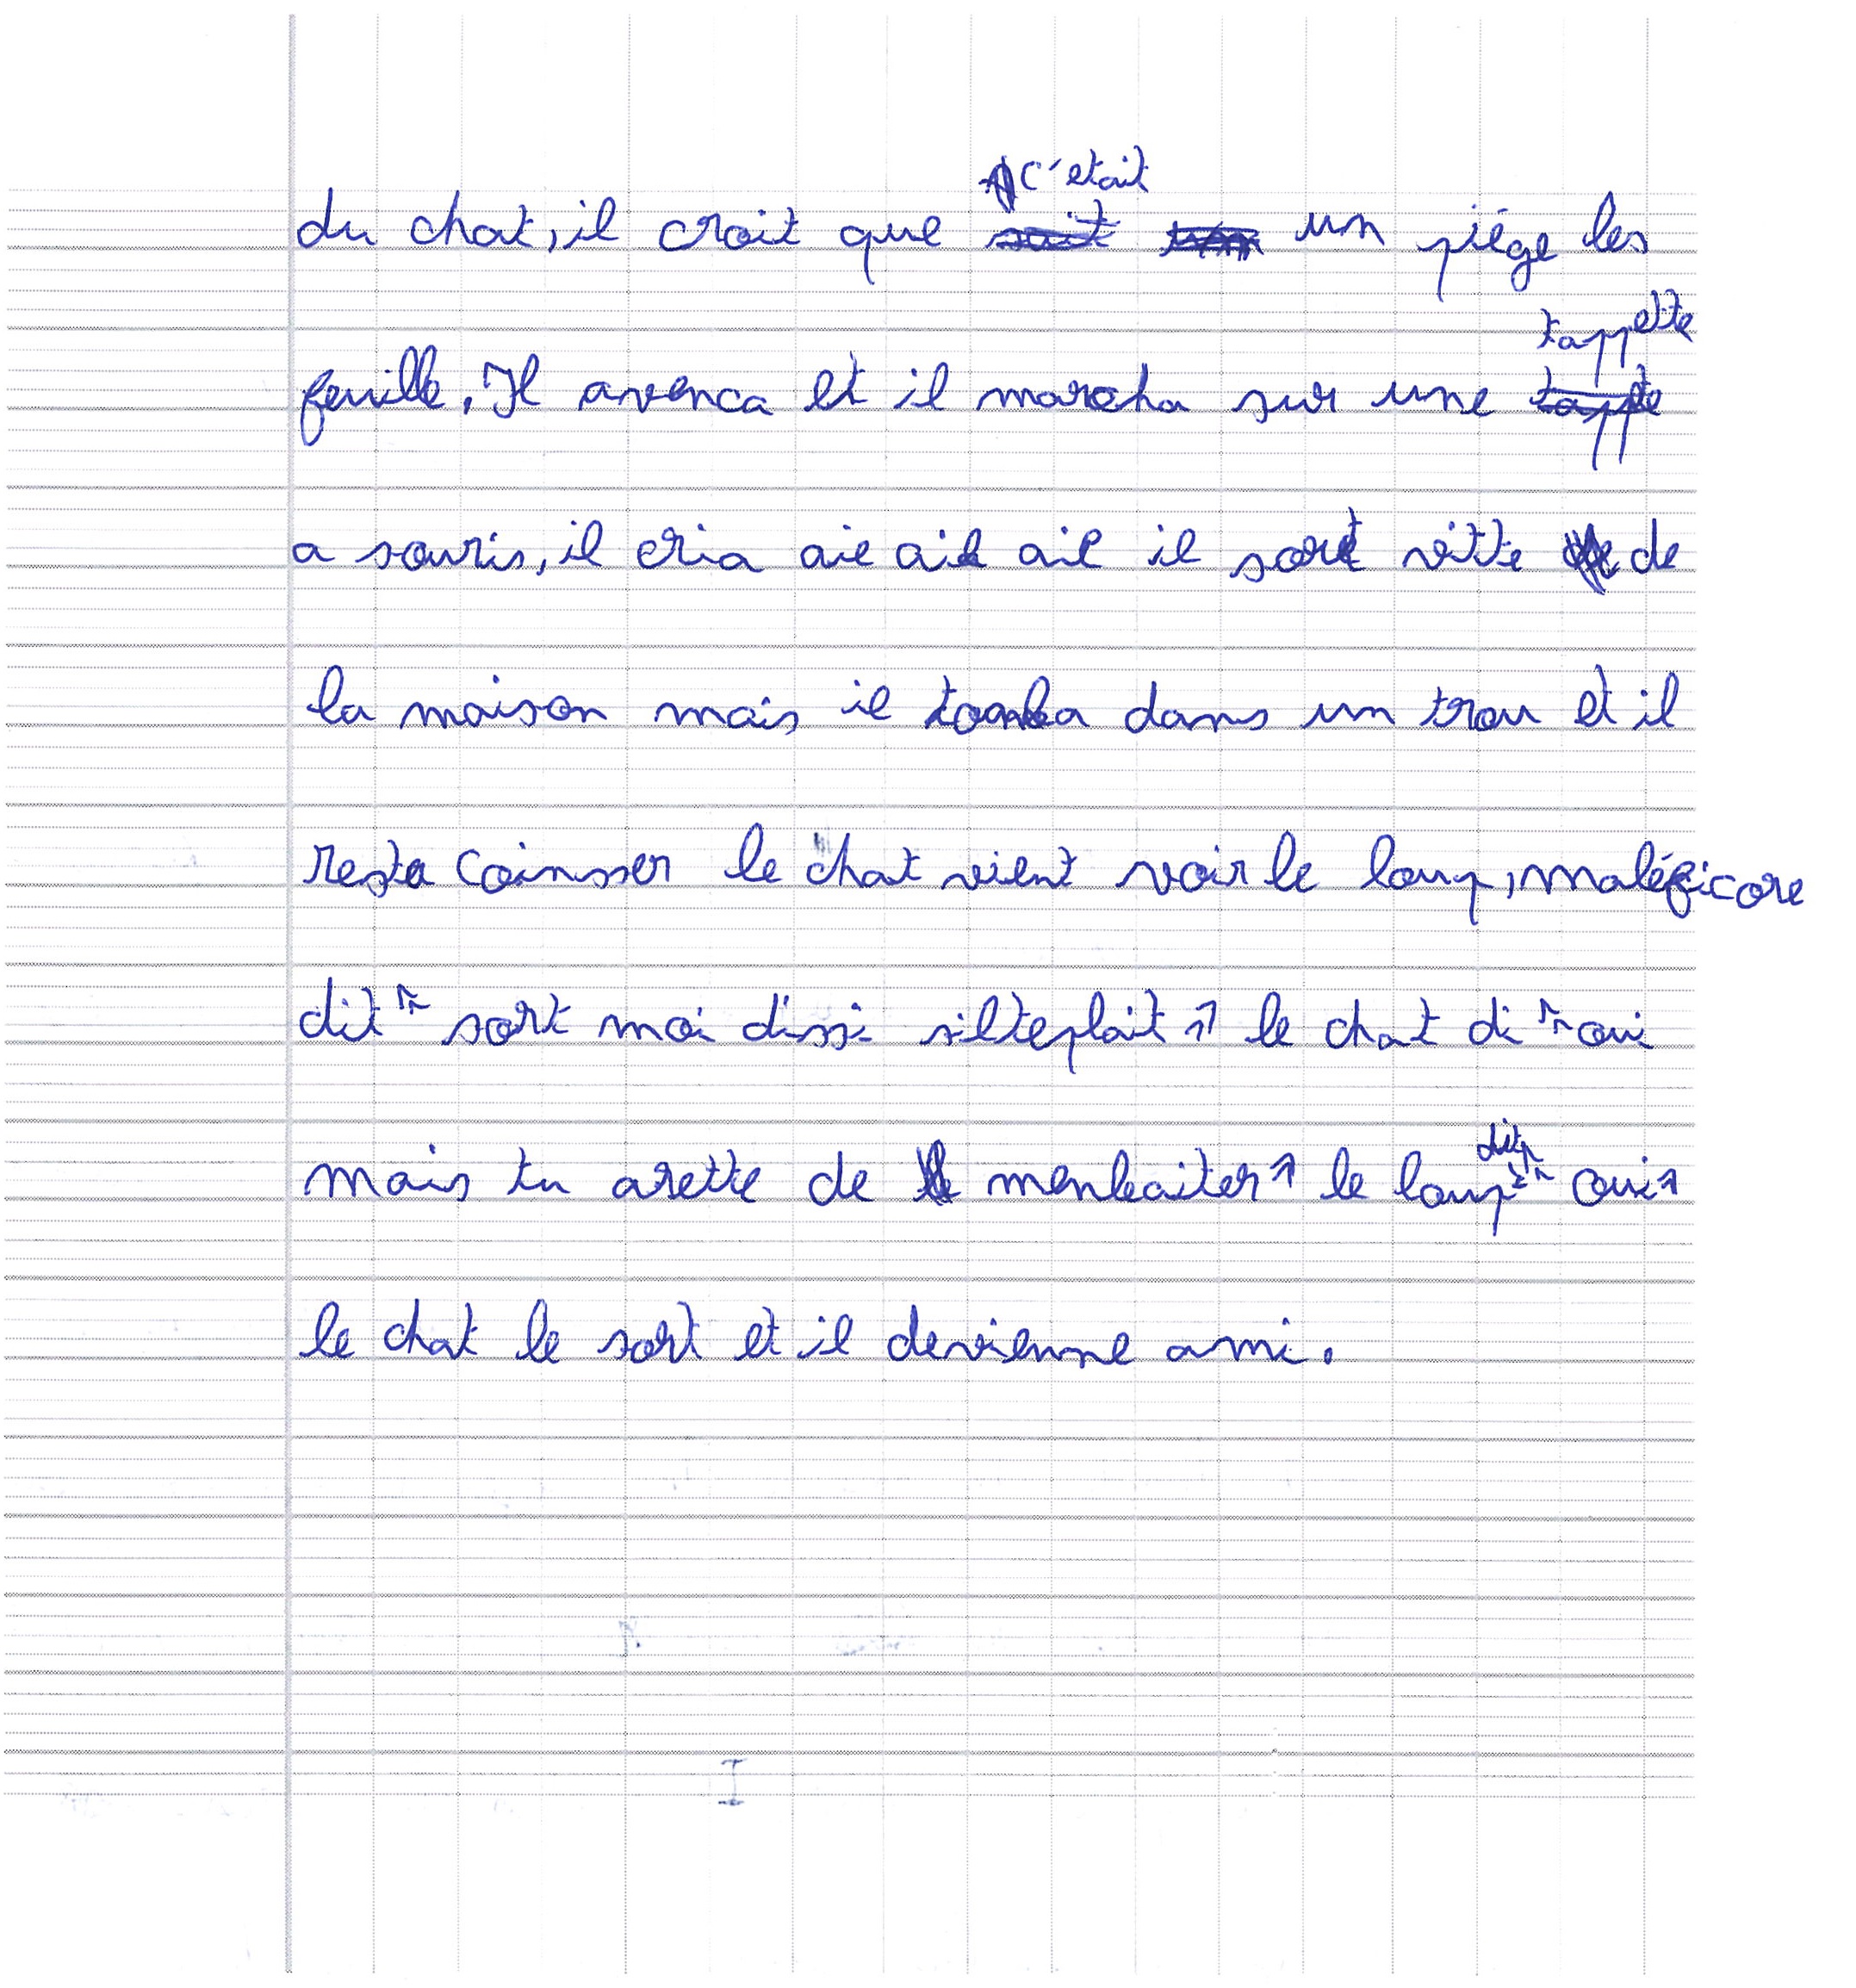 du chat, il croit que c'etait un piége les
feuille. Il avenca et il marcha sur une tappette
a souris, il cria aie aie aie il sort vitte de
la maison mais il tomba dans un trou et il
resta coinsser le chat vient voir le loup, maléficore
dit " sort moi d'issi silteplait " le chat di " oui
mais tu arette de menbaiter " le loup dit " oui "
le chat le sort et il devienne ami.